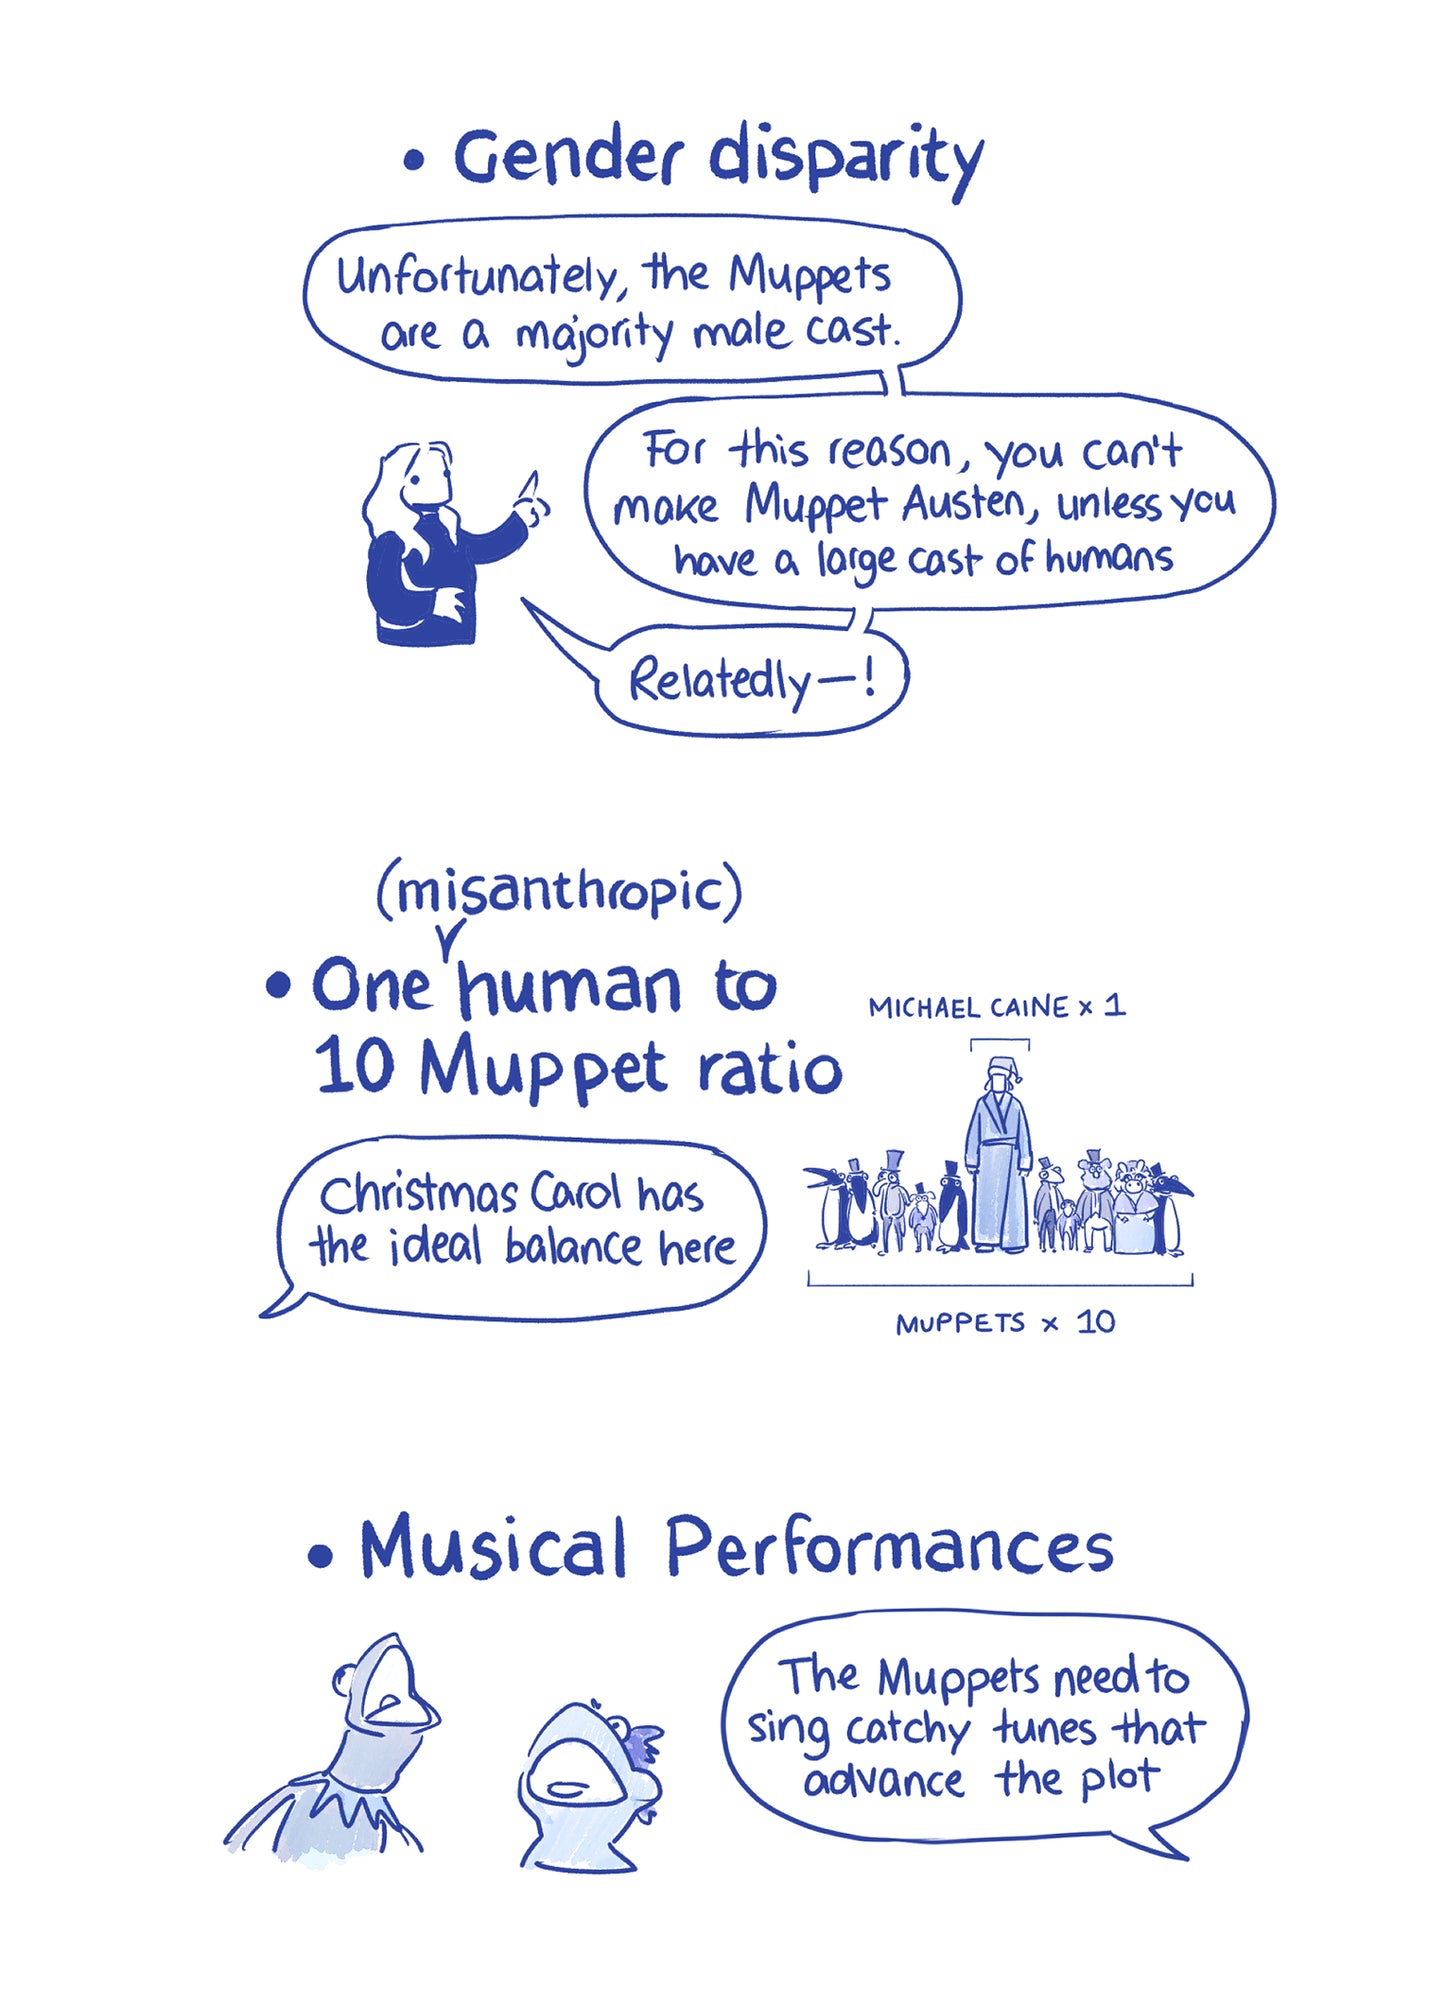 • Gender disparity
Unfortunately, the Muppets
are a majority male cast.
For this reason, you can't
make Muppet Austen, unless you
have a large cast of humans
Relatedly—!
(misanthropic)
• One human to
10 Muppet ratio
MICHAEL CAINE x 1
Christmas Carol has
the ideal balance here
MUPPETS x 10
• Musical Performances
The Muppets need to
sing catchy tunes that
advance the plot